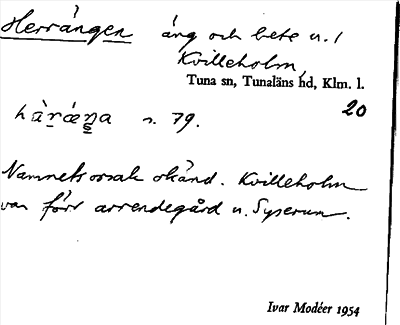 Herrängen äng och bete u. /
Kvilleholm,
Tuna sn, Tunaläns hd, Klm. l.
20
hàr̠áŋa n. 79.
Namnets orsak okänd. Kvilleholm
var förr arrendegård u. Syserum.
Ivar Modéer 1954